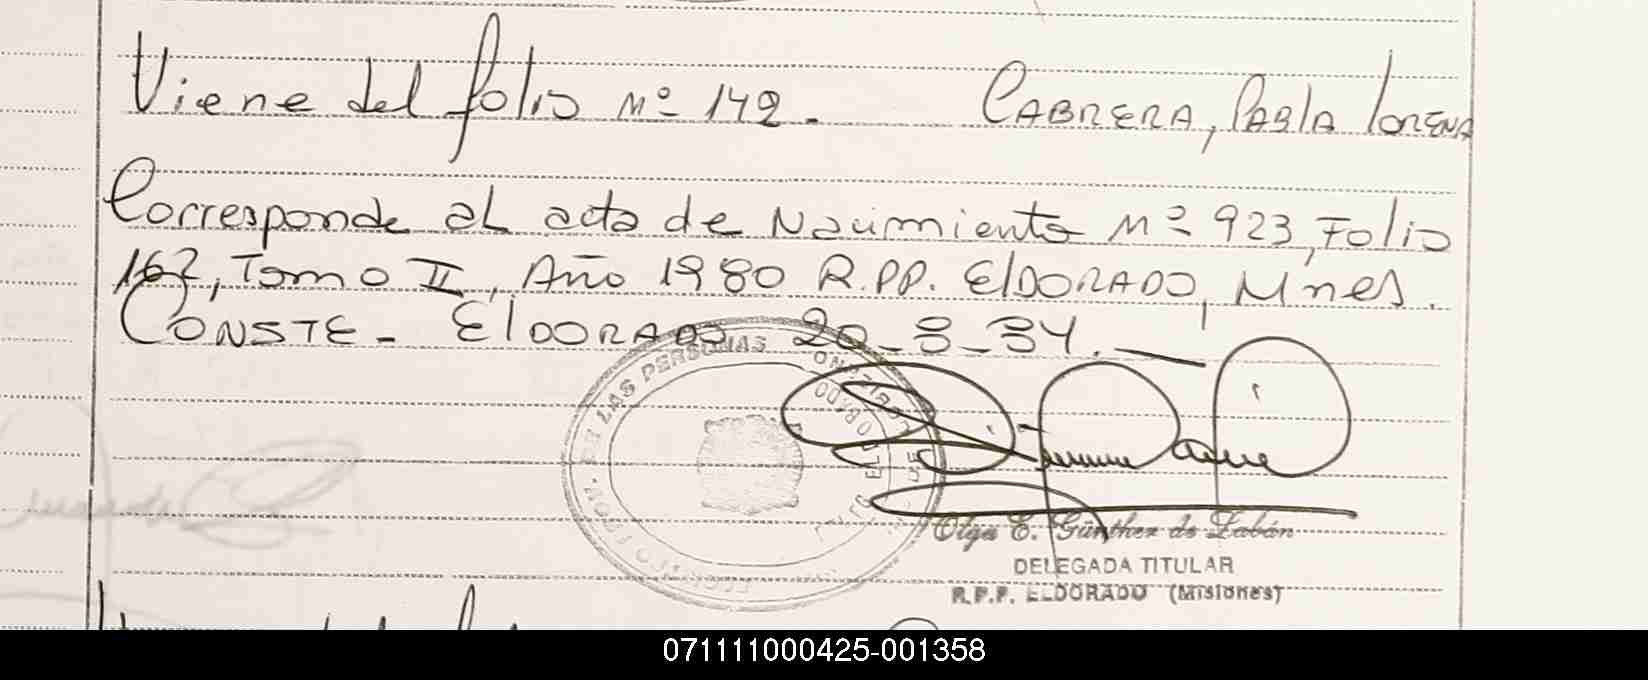 Viene del folio Nº 142. CABRERA, PABLA LORENA
Corresponde al acta de Nacimiento Nº 923, Folio
162, Tomo II, Año 1980 R.PP. ElDORADO, Mnes.
CONSTE - ElDORADO 20-8-84.
DE LAS PERSONAS
Olga E. Günther de Labán
DELEGADA TITULAR
R.P.P. ELDORADO (Misiones)
071111000425-001358